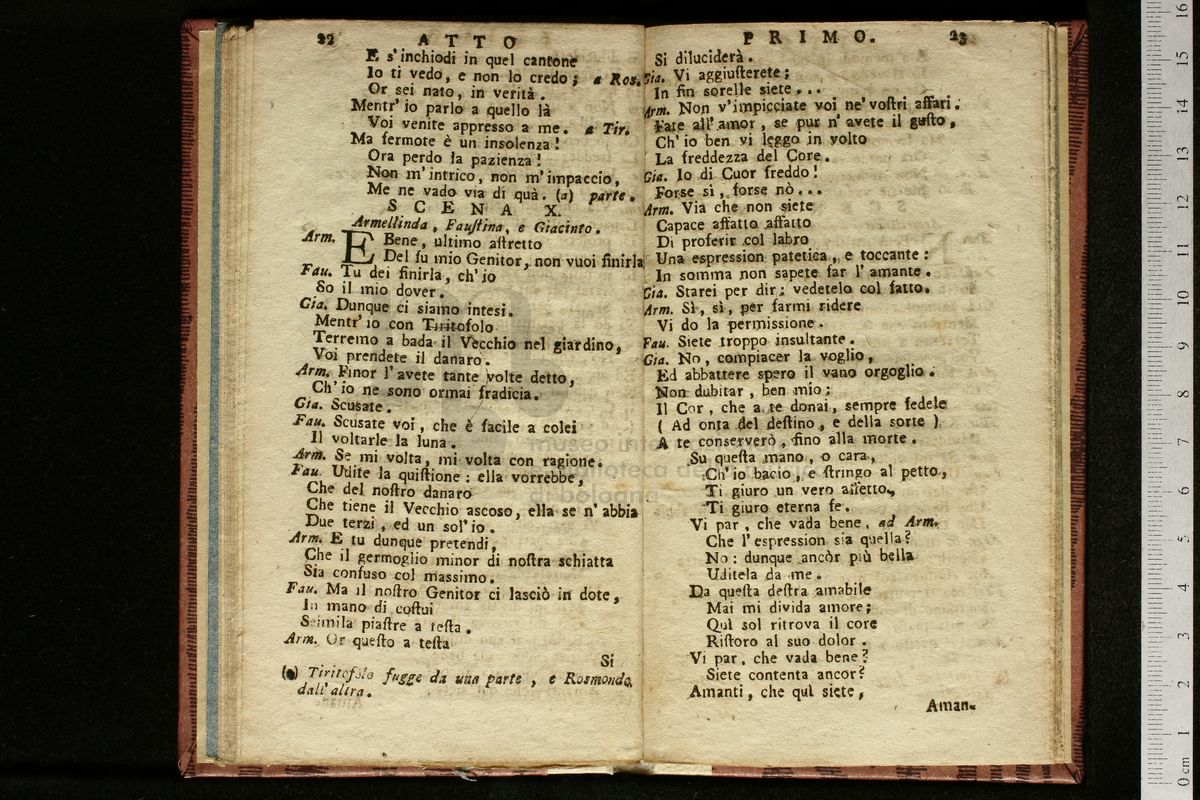 22 ATTO
E s'inchiodi in quel cantone
Io ti vedo, e non lo credo; a Ros.
Or sei nato, in verità.
Mentr' io parlo a quello là
Voi venite appresso a me. a Tir.
Ma fermote è un insolenza!
Ora perdo la pazienza!
Non m'intrico, non m'impaccio,
Me ne vado via di quà. (a) parte.
SCENA X.
Armellinda, Fauſtina, e Giacinto.
Arm. E Bene, ultimo aſtretto
Del fu mio Genitor, non vuoi finirla
Fau. Tu dei finirla, ch'io
So il mio dover.
Gia. Dunque ci siamo intesi.
Mentr' io con Tiritofolo
Terremo a bada il Vecchio nel giardino,
Voi prendete il danaro.
Arm. Finor l'avete tante volte detto,
Ch' io ne sono ormai fradicia.
Gia. Scusate.
Fau. Scusate voi, che è facile a colei
Il voltarle la luna.
Arm. Se mi volta, mi volta con ragione.
Fau. Udite la quiſtione: ella vorrebbe,
Che del noſtro danaro
Che tiene il Vecchio ascoso, ella se n' abbia
Due terzi, ed un sol' io.
Arm. E tu dunque pretendi,
Che il germoglio minor di noſtra schiatta
Sia confuso col massimo.
Fau. Ma il noſtro Genitor ci lasciò in dote,
In mano di coſtui
Seimila piaſtre a teſta.
Arm. Or queſto a teſta
Si
(a) Tiritofolo fugge da una parte, e Rosmonda
dall' altra.
PRIMO. 23
Si diluciderà.
Gia. Vi aggiuſterete;
In fin sorelle siete...
Arm. Non v'impicciate voi ne' voſtri affari.
Fate all' amor, se pur n' avete il guſto,
Ch' io ben vi leggo in volto
La freddezza del Core.
Gia. Io di Cuor freddo!
Forse sì, forse nò...
Arm. Via che non siete
Capace affatto affatto
Di proferir col labro
Una espression patetica, e toccante:
In somma non sapete far l' amante.
Gia. Starei per dir: vedetelo col fatto.
Arm. Sì, sì, per farmi ridere
Vi do la permissione.
Fau. Siete troppo insultante.
Gia. No, compiacer la voglio,
Ed abbattere spero il vano orgoglio.
Non dubitar, ben mio:
Il Cor, che a te donai, sempre fedele
( Ad onta del deſtino, e della sorte )
A te conserverò, fino alla morte.
Su queſta mano, o cara,
Ch' io bacio, e ſtringo al petto,
Ti giuro un vero affetto,
Ti giuro eterna fe.
Vi par, che vada bene, ad Arm.
Che l' espression sia quella?
No: dunque ancòr più bella
Uditela da me.
Da queſta deſtra amabile
Mai mi divida amore;
Quì sol ritrova il core
Riſtoro al suo dolor.
Vi par, che vada bene?
Siete contenta ancor?
Amanti, che quì siete,
Aman-
museo
biblioteca de
di bologna
0 cm 1 2 3 4 5 6 7 8 9 10 11 12 13 14 15 16